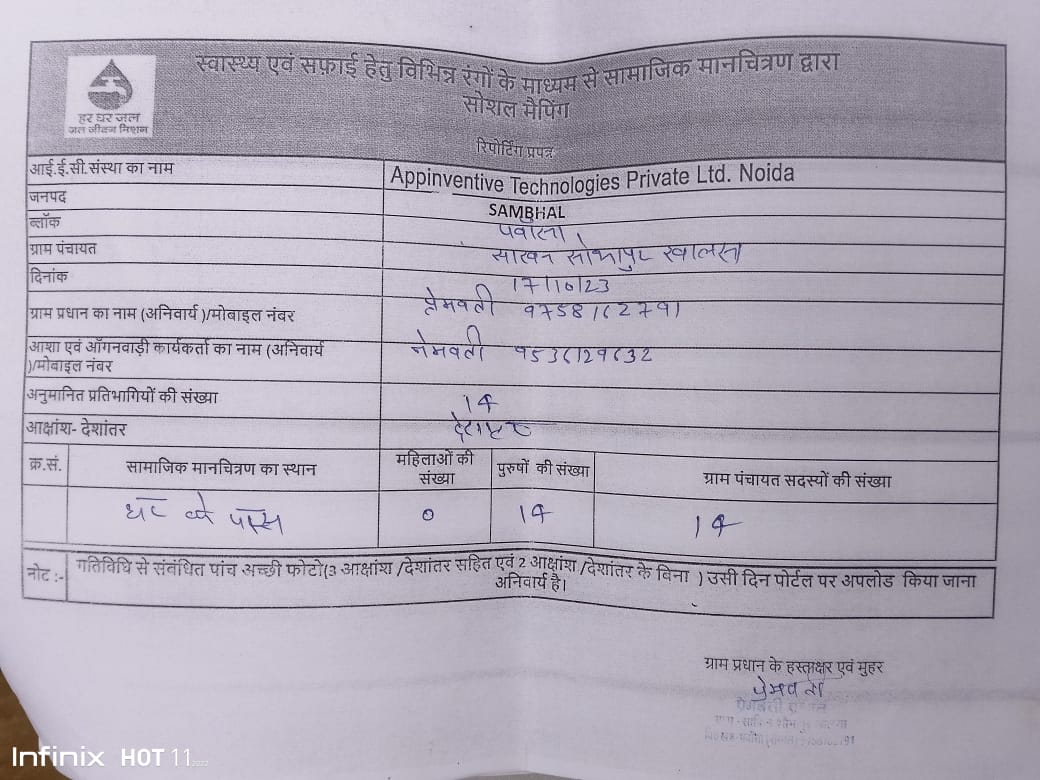 स्वास्थ्य एवं सफ़ाई हेतु विभिन्न रंगों के माध्यम से सामाजिक मानचित्रण द्वारा
सोशल मैपिंग
हर घर जल
जल जीवन मिशन
रिपोर्टिंग प्रपत्र
आई.ई.सी.संस्था का नाम Appinventive Technologies Private Ltd. Noida
जनपद SAMBHAL
ब्लॉक पवांसा
ग्राम पंचायत सोभापुर खालसा
दिनांक 17/10/23
ग्राम प्रधान का नाम (अनिवार्य )/मोबाइल नंबर प्रेमवती 9758162791
आशा एवं ऑगनवाड़ी कार्यकर्ता का नाम (अनिवार्य नेमवती 9536129632
)/मोबाइल नंबर
अनुमानित प्रतिभागियों की संख्या 14
आक्षांश- देशांतर
क्र.सं. सामाजिक मानचित्रण का स्थान महिलाओं की संख्या पुरुषों की संख्या ग्राम पंचायत सदस्यों की संख्या
घर के पास 0 14 14
नोट :- गतिविधि से संबंधित पांच अच्छी फोटो(3 आक्षांश /देशांतर सहित एवं 2 आक्षांश /देशांतर के बिना ) उसी दिन पोर्टल पर अपलोड किया जाना
अनिवार्य है।
ग्राम प्रधान के हस्ताक्षर एवं मुहर
प्रेमवती
Infinix HOT 11 2022